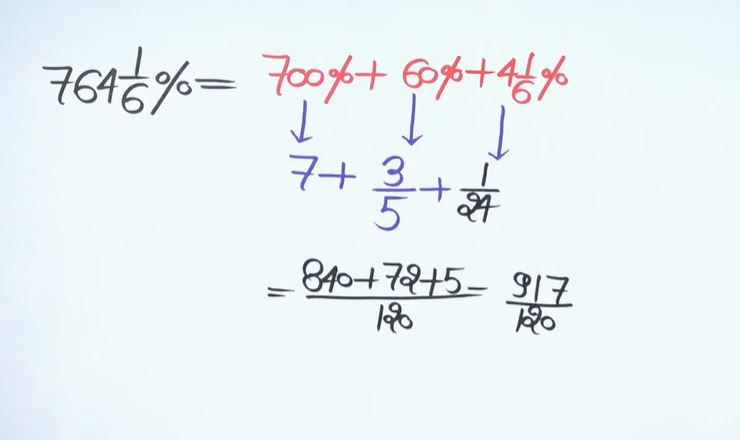 764 1/6 % = 700% + 60% + 4 1/6 %
7 + 3/5 + 1/24
= 840+72+5/120 = 917/120